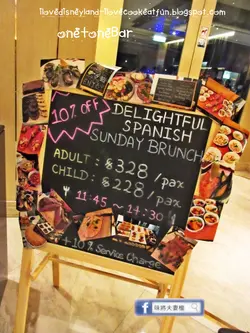 ilovedisneyland-ilovecookeatfun.blogspot.com
onetonebar
10% OFF
DELIGHTFUL
SPANISH
SUNDAY BRUNCH
ADULT : $328 /pax
CHILD : $228 /pax
11:45 ~ 14:30
+10% Service Charge